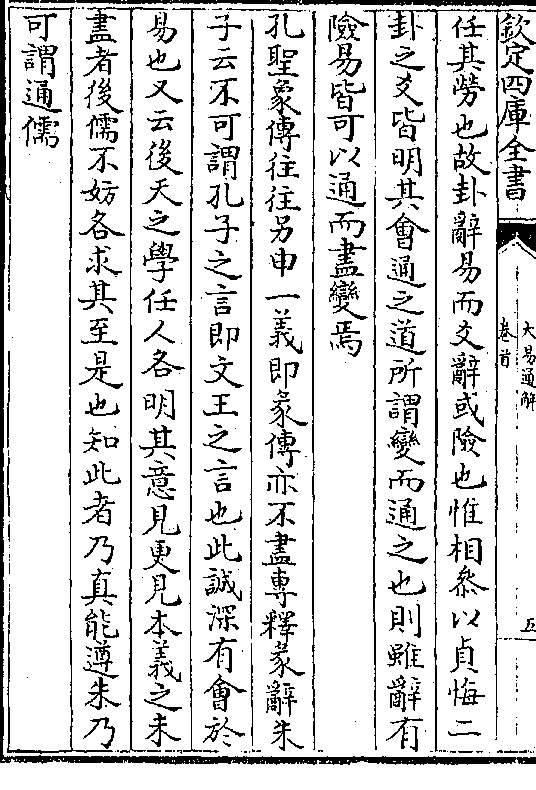 欽定四庫全書
大易通解
卷首
五
任其勞也故卦辭易而爻辭或險也惟相叅以貞悔二
卦之爻皆明其會通之道所謂變而通之也則雖辭有
險易皆可以通而盡變焉
孔聖象傳往往另申一義即彖傳亦不盡專釋彖辭朱
子云不可謂孔子之言即文王之言也此誠深有會於
易也又云後天之學任人各明其意見更見本義之未
盡者後儒不妨各求其至是也知此者乃真能遵朱乃
可謂通儒